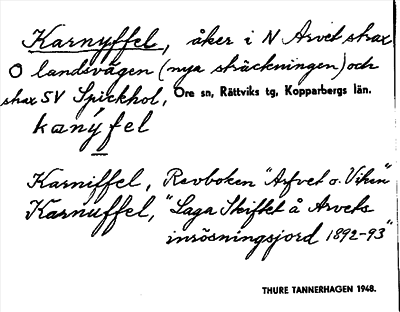 Karnyffel, åker i N Arvet strax
O landsvägen (nya sträckningen) och
strax SV Spickhol, Ore sn, Rättviks tg, Kopparbergs län.
kanýfel
Karniffel, Revboken "Arfvet o. Viken"
Karnuffel, "Laga Skiftet å Arvets
inrösningsjord 1892-93"
THURE TANNERHAGEN 1948.